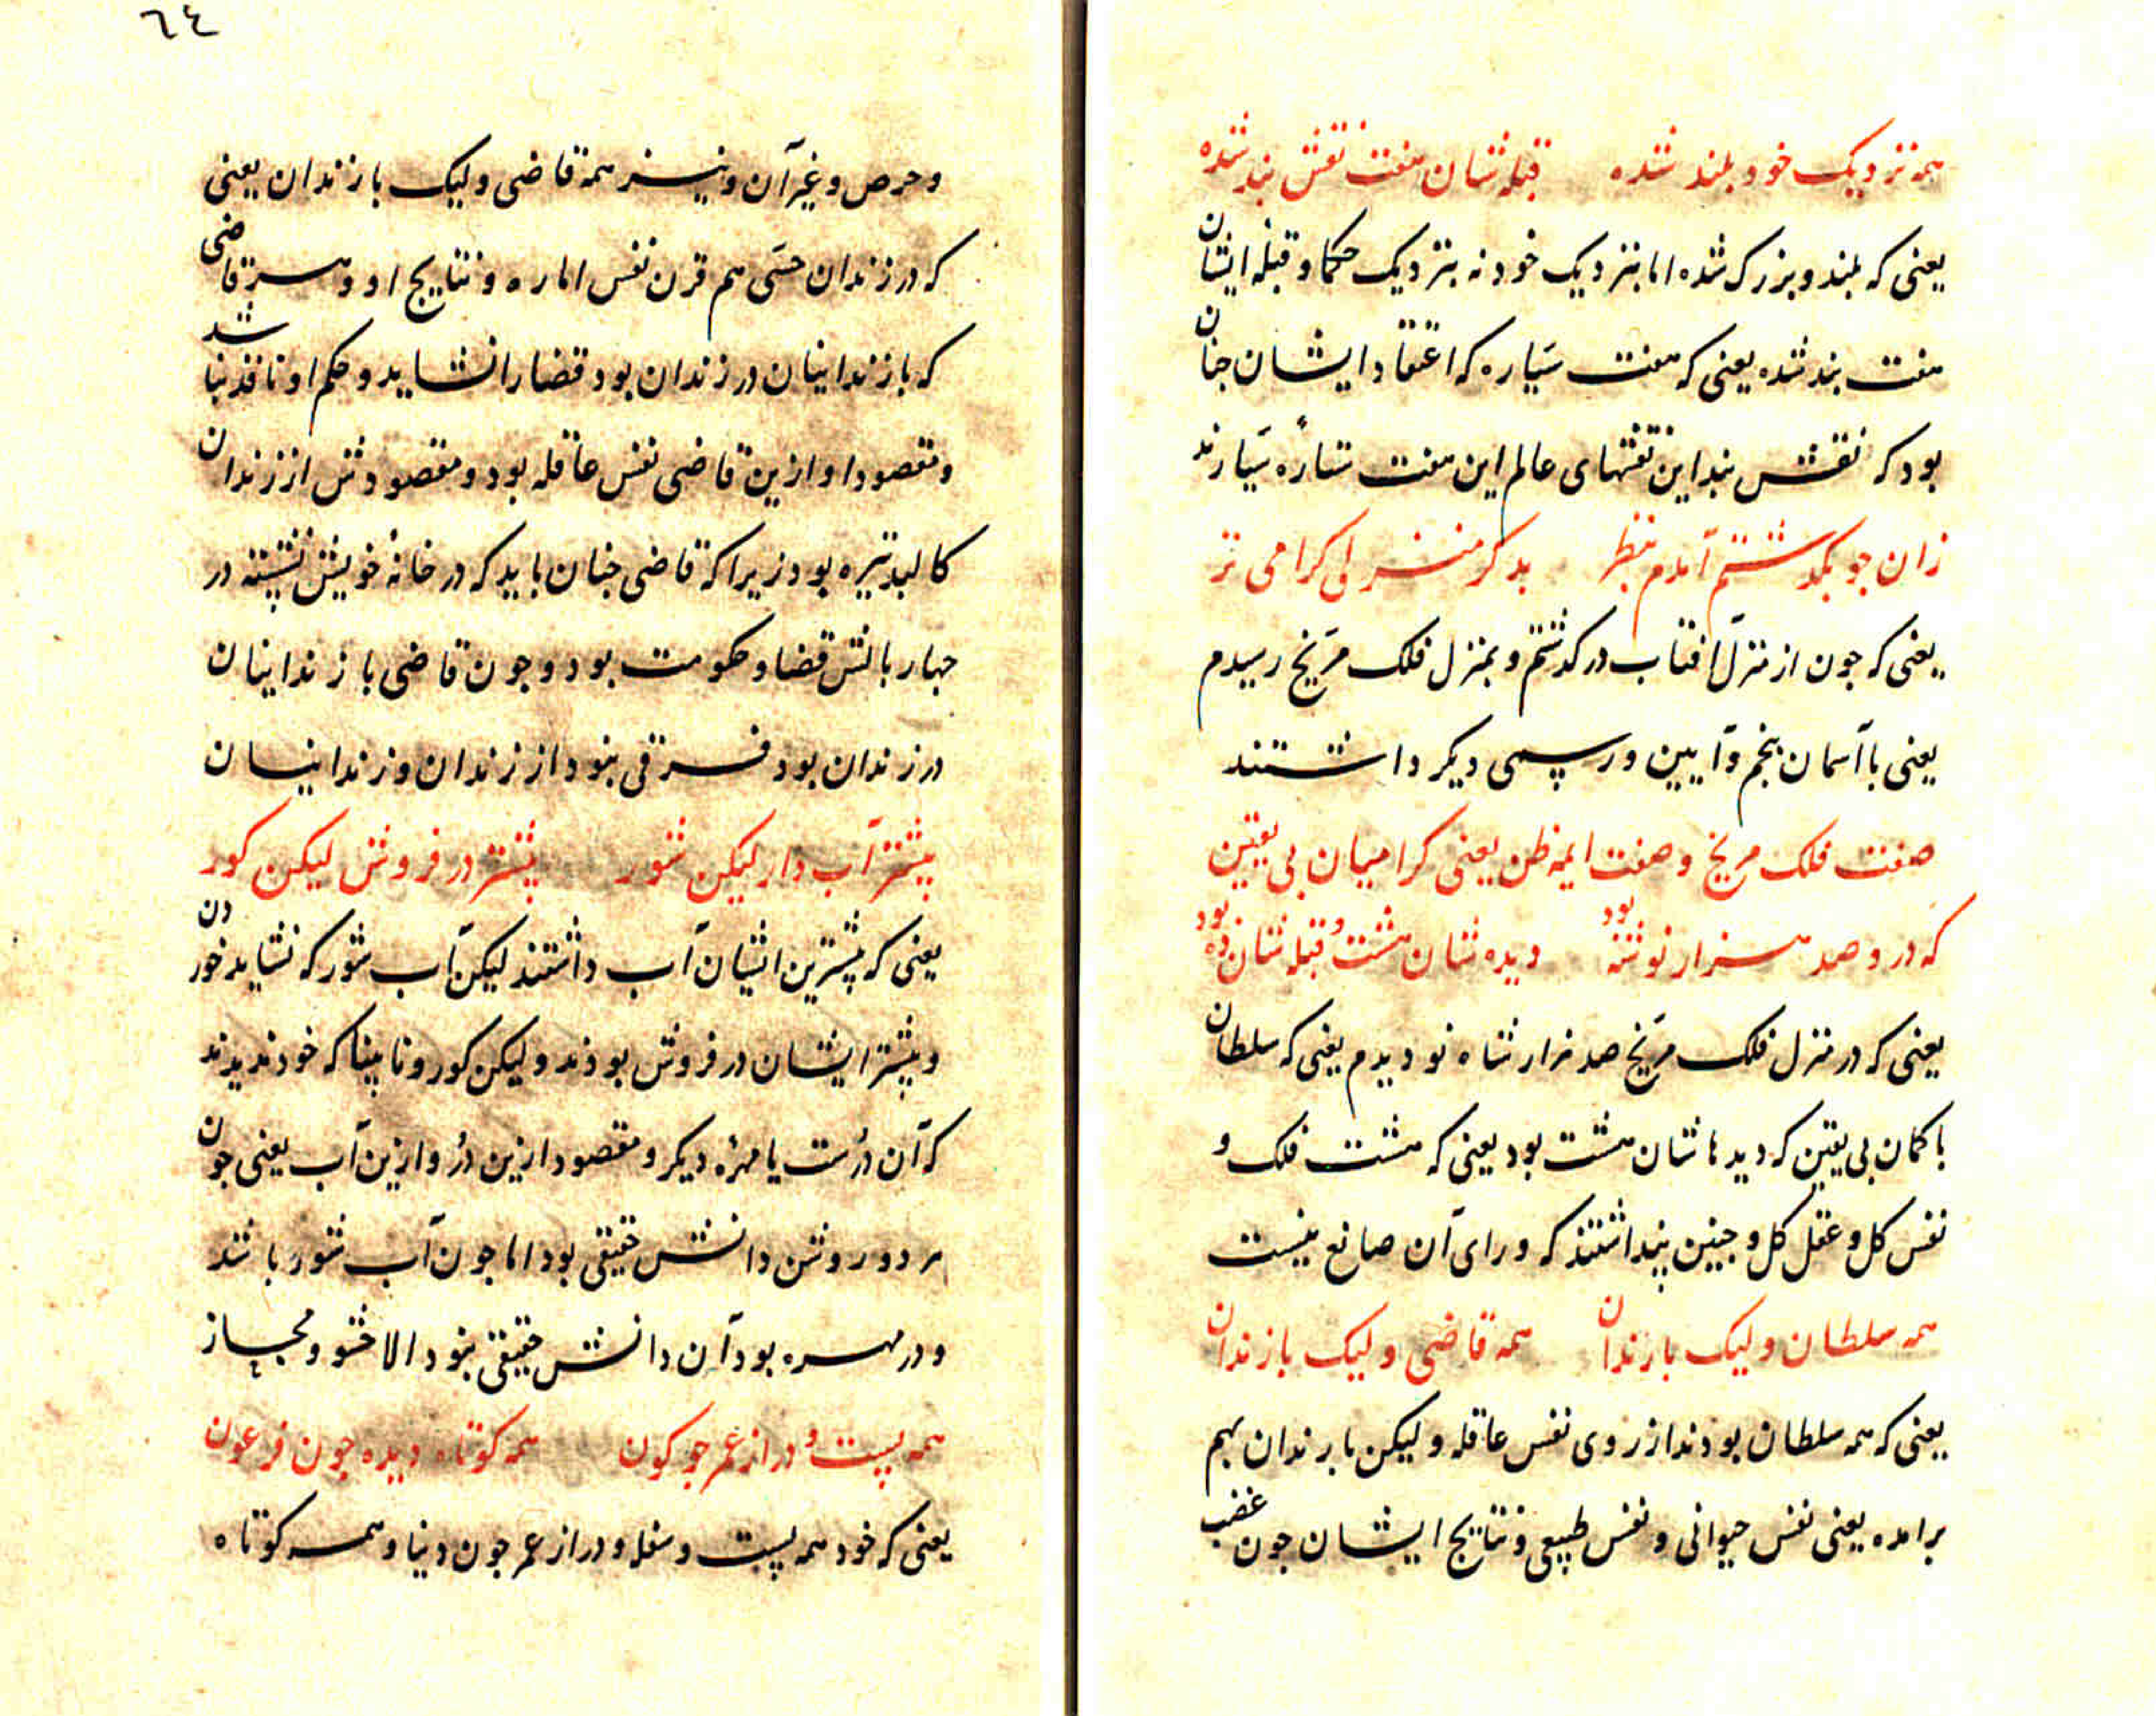 همه نزدیک خود بلند شده قبله شان هفت نقش بند شده
یعنی که بلند و بزرک شده اما بنزدیک خود نه بنزدیک حکما و قبله ایشان
هفت بند شده یعنی که هفت سیاره که اعتقاد ایشان جنان
بود که نقش بند این نقشهای عالم این هفت ستاره سیارند
زان جو بکذشتم آمدم بنظر بدکر منزلی کرامی تر
یعنی که جون از منزل آفتاب درکذشتم و بمنزل فلک مریخ رسیدم
یعنی با آسمان پنجم و آیین و رسمی دیکر داشتند
صفت فلک مریخ و صفت ایمه ظن یعنی کرامیان بی یقین
که درو صد هزار نوشته بود دیده شان هشت و قبله شان ده بود
یعنی که در منزل فلک مریخ صد هزار شاه نو دیدم یعنی که سلطان
با کمان بی یقین که دیدهاشان هشت بود یعنی که هشت فلک و
نفس کل و عقل کل و جنین پنداشتند که ورای آن صانع نیست
همه سلطان ولیک با رندان همه قاضی ولیک با زندان
یعنی که همه سلطان بودند از روی نفس عاقله ولیکن با رندان بهم
برامده یعنی نفس حیوانی و نفس طبیعی و نتایج ایشان جون غضب
٦٤
و حرص و غیر آن و نیز همه قاضی ولیک با زندان یعنی
که در زندان حسی هم قرن نفس اماره و نتایج او و هر قاضی
که با زندانیان در زندان بود قضا را نشاید و حکم او نافذ نباشد
و مقصود او ازین قاضی نفس عاقله بود و مقصودش از زندان
کالبد تیره بود زیرا که قاضی جنان باید که در خانهٔ خویش نشسته در
جهار بالش قضا و حکومت بود و جون قاضی با زندانیان
در زندان بود فرقی نبود از زندان و زندانیان
بیشتر آب دار لیکن شور بیشتر در فروش لیکن کور
یعنی که بیشترین ایشان آب داشتند لیکن آب شور که نشاید خوردن
و بیشتر ایشان در فروش بودند ولیکن کور و نابینا که خود ندیدند
که آن درست یا مهرهٔ دیکر و مقصود ازین در و ازین آب یعنی جون
هر دو روشن دانش حقیقی بود اما جون آب شور باشد
و در مهره بود آن دانش حقیقی نبود الا حشو و مجاز
همه پست و دراز عمر جو کون همه کوتاه دیده جون فرعون
یعنی که خود همه پست و سفله و دراز عمر جون دنیا و همه کوتاه